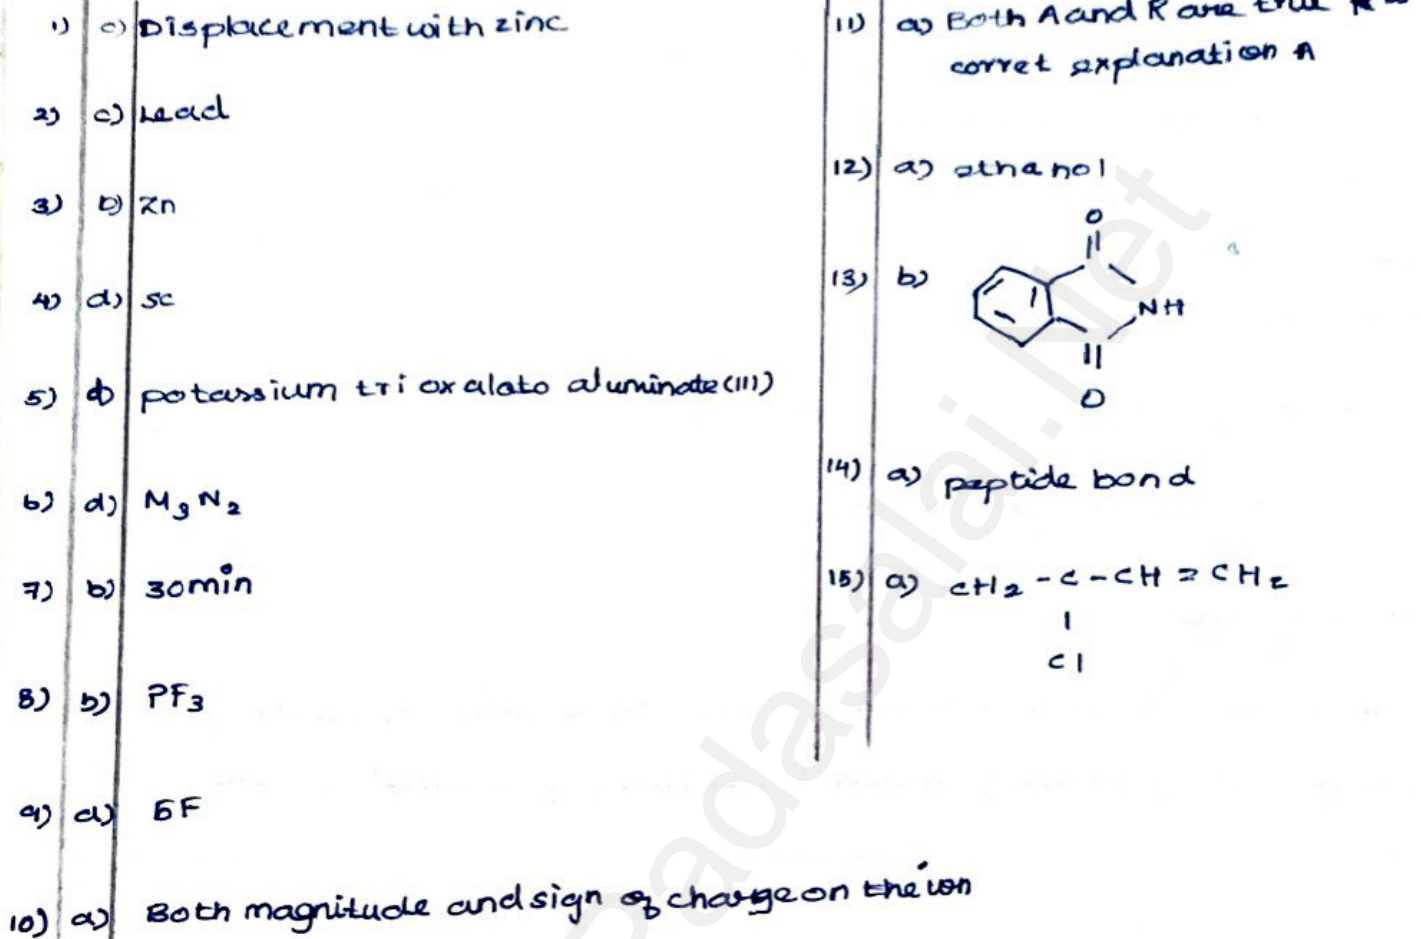 1) c) Displacement with zinc
2) c) Lead
3) b) Zn
4) d) sc
5) d) potassium tri oxalato aluminate (III)
6) d) M3N2
7) b) 30min
8) b) PF3
9) d) 5F
10) a) Both magnitude and sign of charge on the ion
11) a) Both A and R are true
corret explanation A
12) a) ethanol
13) b)
O
NH
O
14) a) peptide bond
15) a) CH2 - C - CH = CH2
Cl
Padasalai.Net